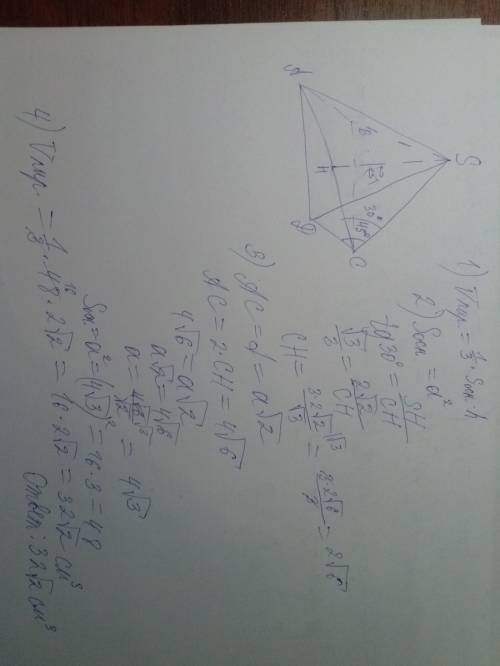 S
A
B
H
D
C
2√2
30°
45°
1) Vпир. = 1/3 · Sосн. h
2) Sосн = a²
tg 30° = SH/CH
√3/3 = 2√2/CH
CH = 3·2√2/√3 \√3 = 3·2√6/3 = 2√6
3) AC = d = a√2
AC = 2·CH = 4√6
4√6 = a√2
a√2 = 4√6
a = 4√6/√2 = 4√3
Sосн = a² = (4√3)² = 16·3 = 48
4) Vпир. = 1/3 · 48 · 2√2 = 16·2√2 = 32√2 см³
Ответ: 32√2 см³